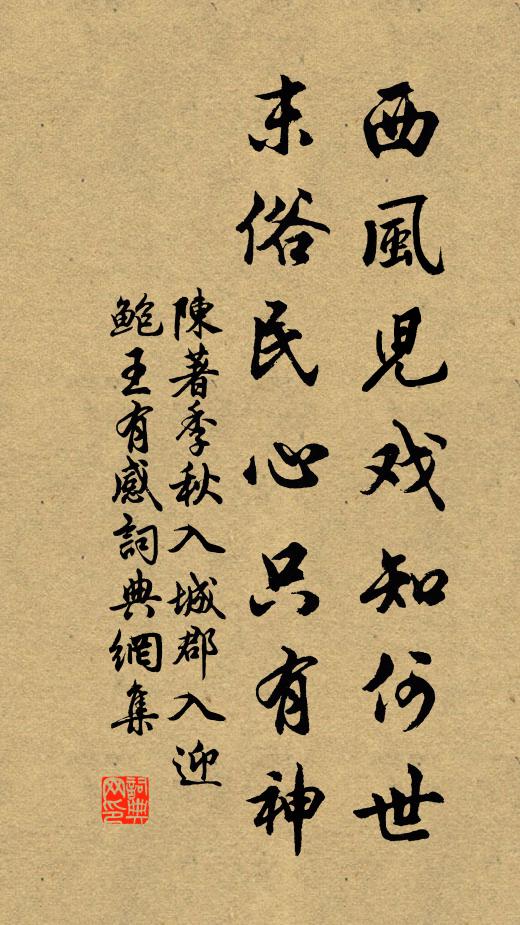 西風児戏知何世
末俗民心只有神
陳著季秋入城郡入迎
鲍王有感詞典網集
詞典网印